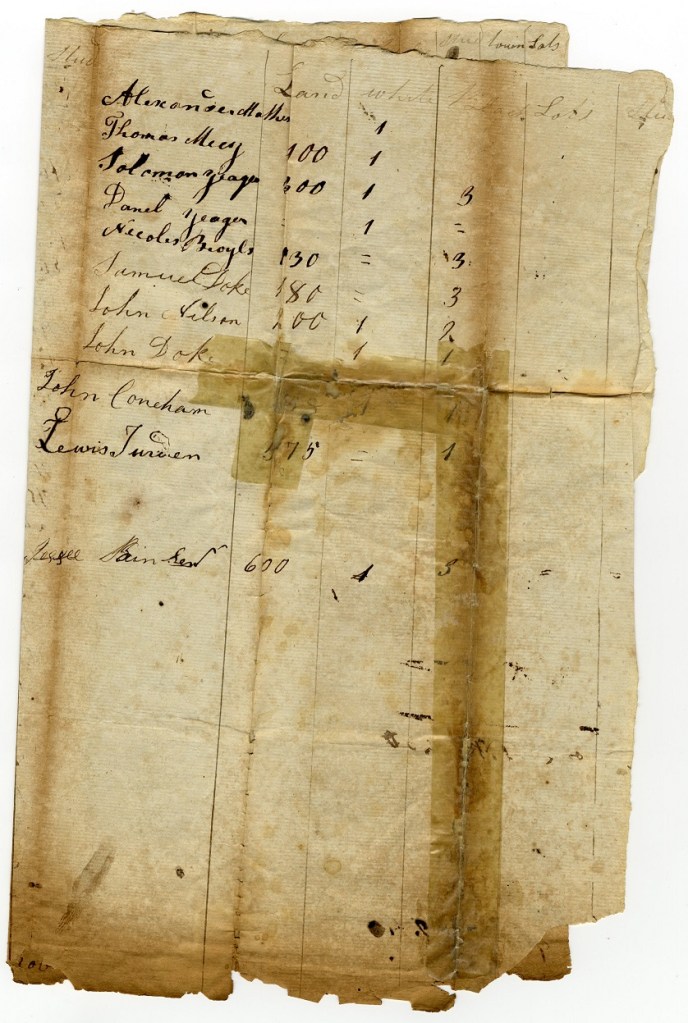 town Lots
Land white Lots
Alexander Mathes 1
Thomas Mecy 100 1
Solomon Yeager 300 1 3
Danel Yeager 1 =
Necoles Broyls 130 = 3
Samuel Doke 180 = 3
John Nelson 200 1 2
John Doke = 1 1
John Coneham 1 1
Lewis Jurden 475 = 1
600 1 3 = =